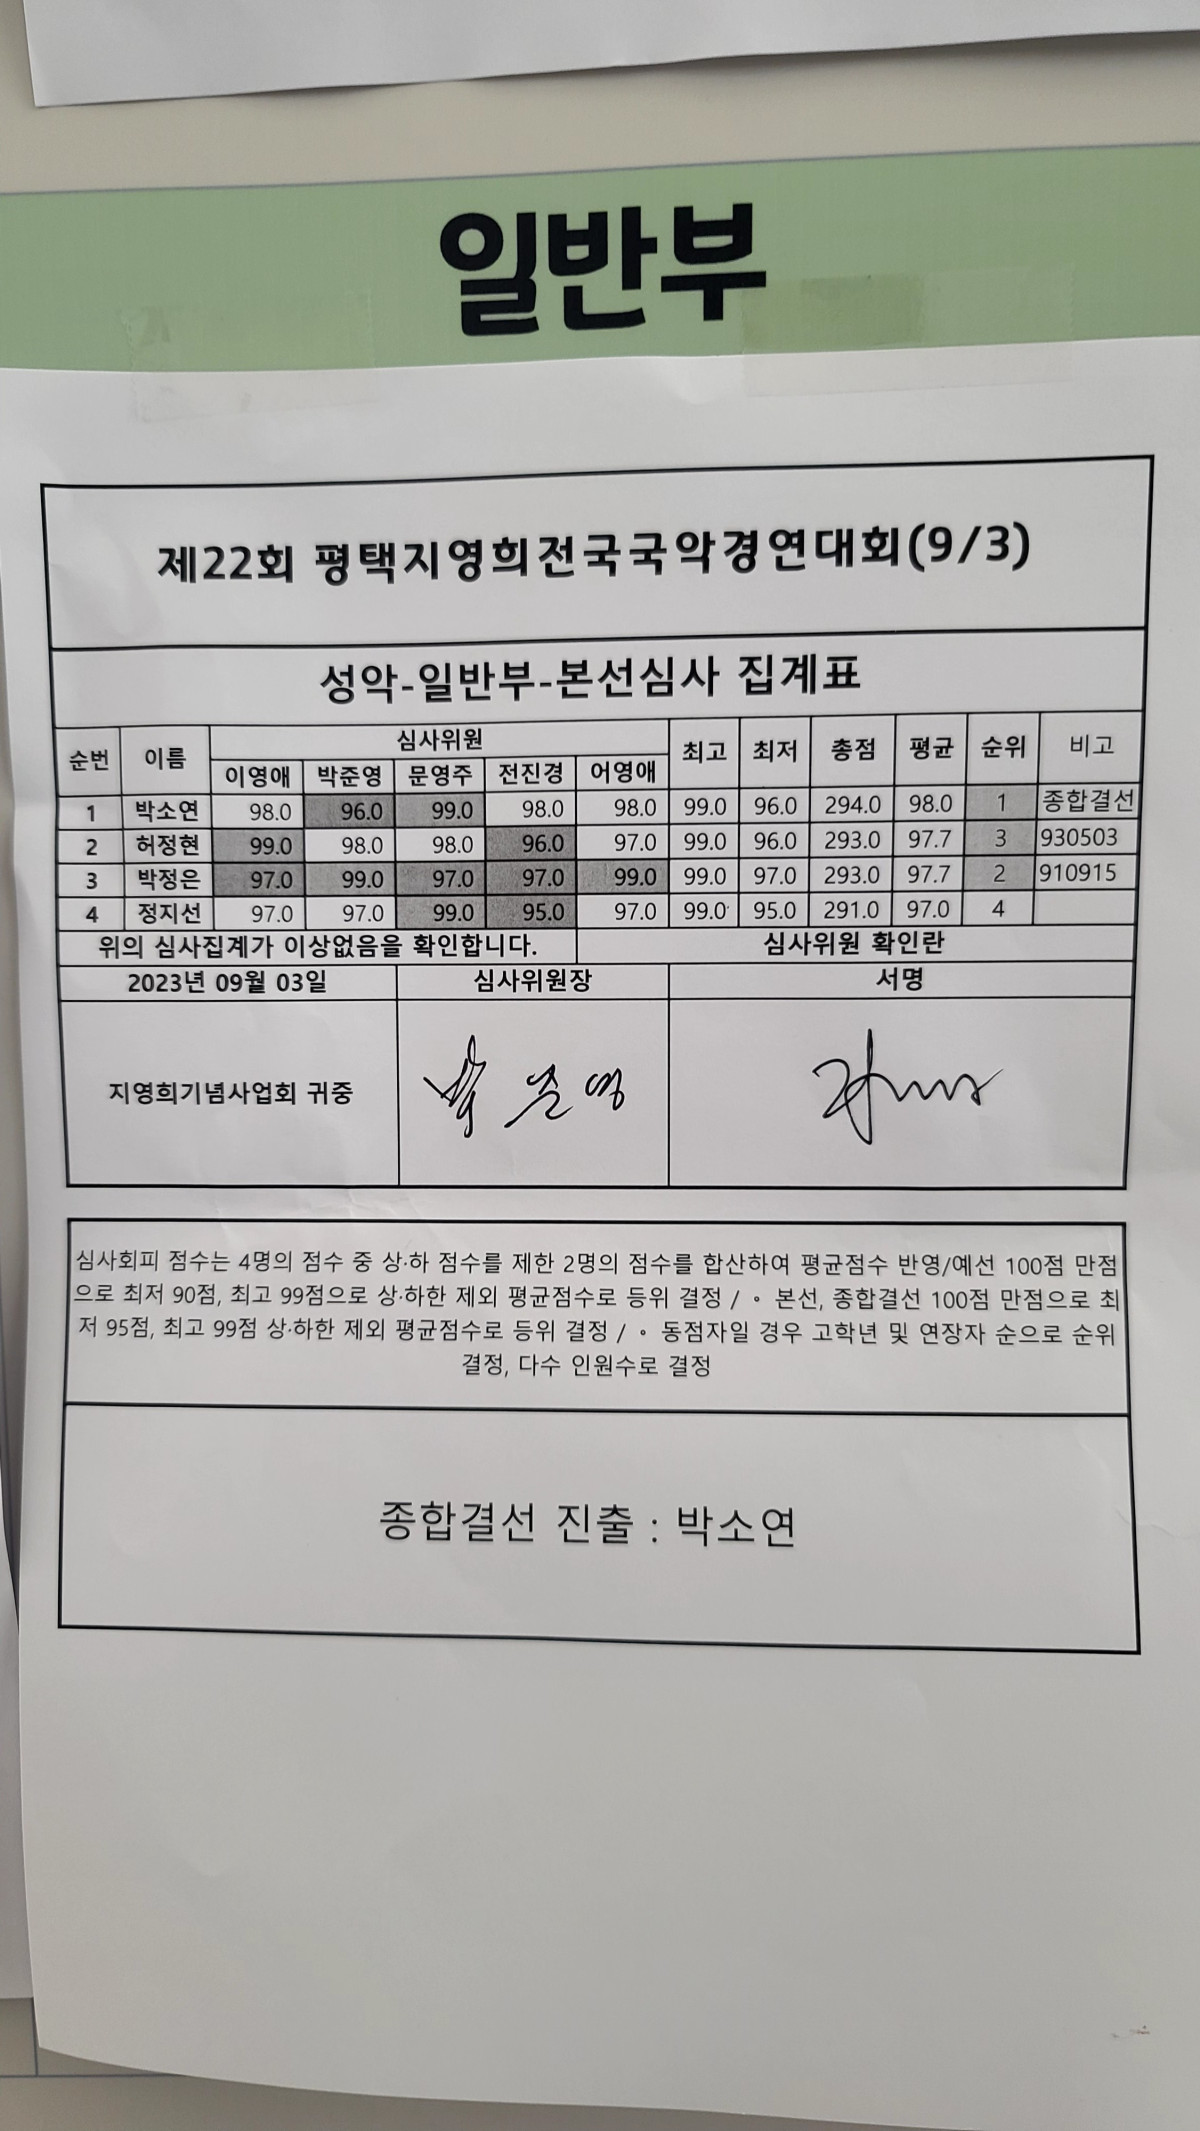 일반부
제22회 평택지영희전국국악경연대회(9/3)
성악-일반부-본선심사 집계표
순번 이름 심사위원 최고 최저 총점 평균 순위 비고
이영애 박준영 문영주 전진경 어영애
1 박소연 98.0 96.0 99.0 98.0 98.0 99.0 96.0 294.0 98.0 1 종합결선
2 허정현 99.0 98.0 98.0 96.0 97.0 99.0 96.0 293.0 97.7 3 930503
3 박정은 97.0 99.0 97.0 97.0 99.0 99.0 97.0 293.0 97.7 2 910915
4 정지선 97.0 97.0 99.0 95.0 97.0 99.0 95.0 291.0 97.0 4
위의 심사집계가 이상없음을 확인합니다. 심사위원 확인란
2023년 09월 03일 심사위원장 서명
지영희기념사업회 귀중 박준영
심사회피 점수는 4명의 점수 중 상·하 점수를 제한 2명의 점수를 합산하여 평균점수 반영/예선 100점 만점
으로 최저 90점, 최고 99점으로 상·하한 제외 평균점수로 등위 결정 / ∘ 본선, 종합결선 100점 만점으로 최
저 95점, 최고 99점 상·하한 제외 평균점수로 등위 결정 / ∘ 동점자일 경우 고학년 및 연장자 순으로 순위
결정, 다수 인원수로 결정
종합결선 진출 : 박소연